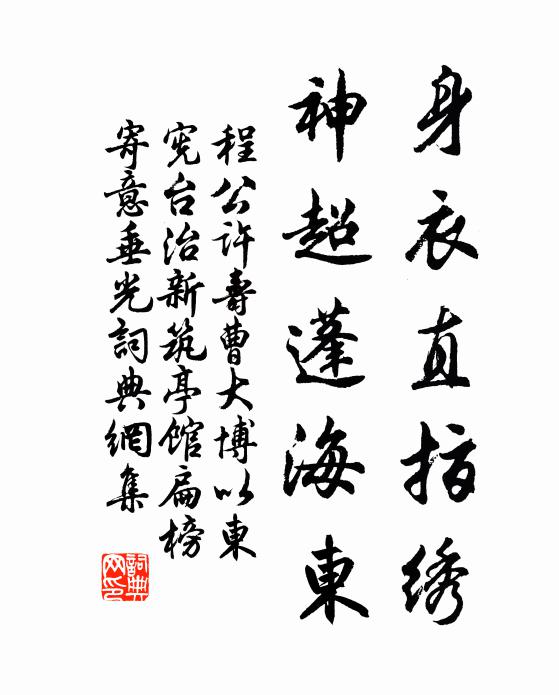 身衣直指绣
神超蓬海東
程公许壽曹大博以東
宪台治新筑亭館扁榜
寄意垂光詞典網集
詞典網印